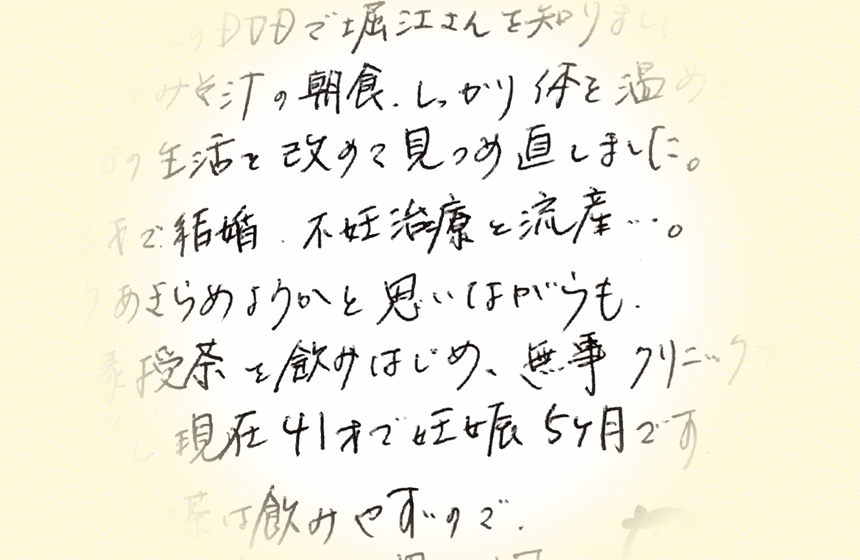 のDVDで堀江さんを知りまし
みそ汁の朝食、しっかり体を温め
の生活を改めて見つめ直しました。
才で結婚、不妊治療と流産…。
あきらめようかと思いながらも、
授茶を飲みはじめ、無事クリニック
現在41才で妊娠5ヶ月です
茶は飲みやすいので、